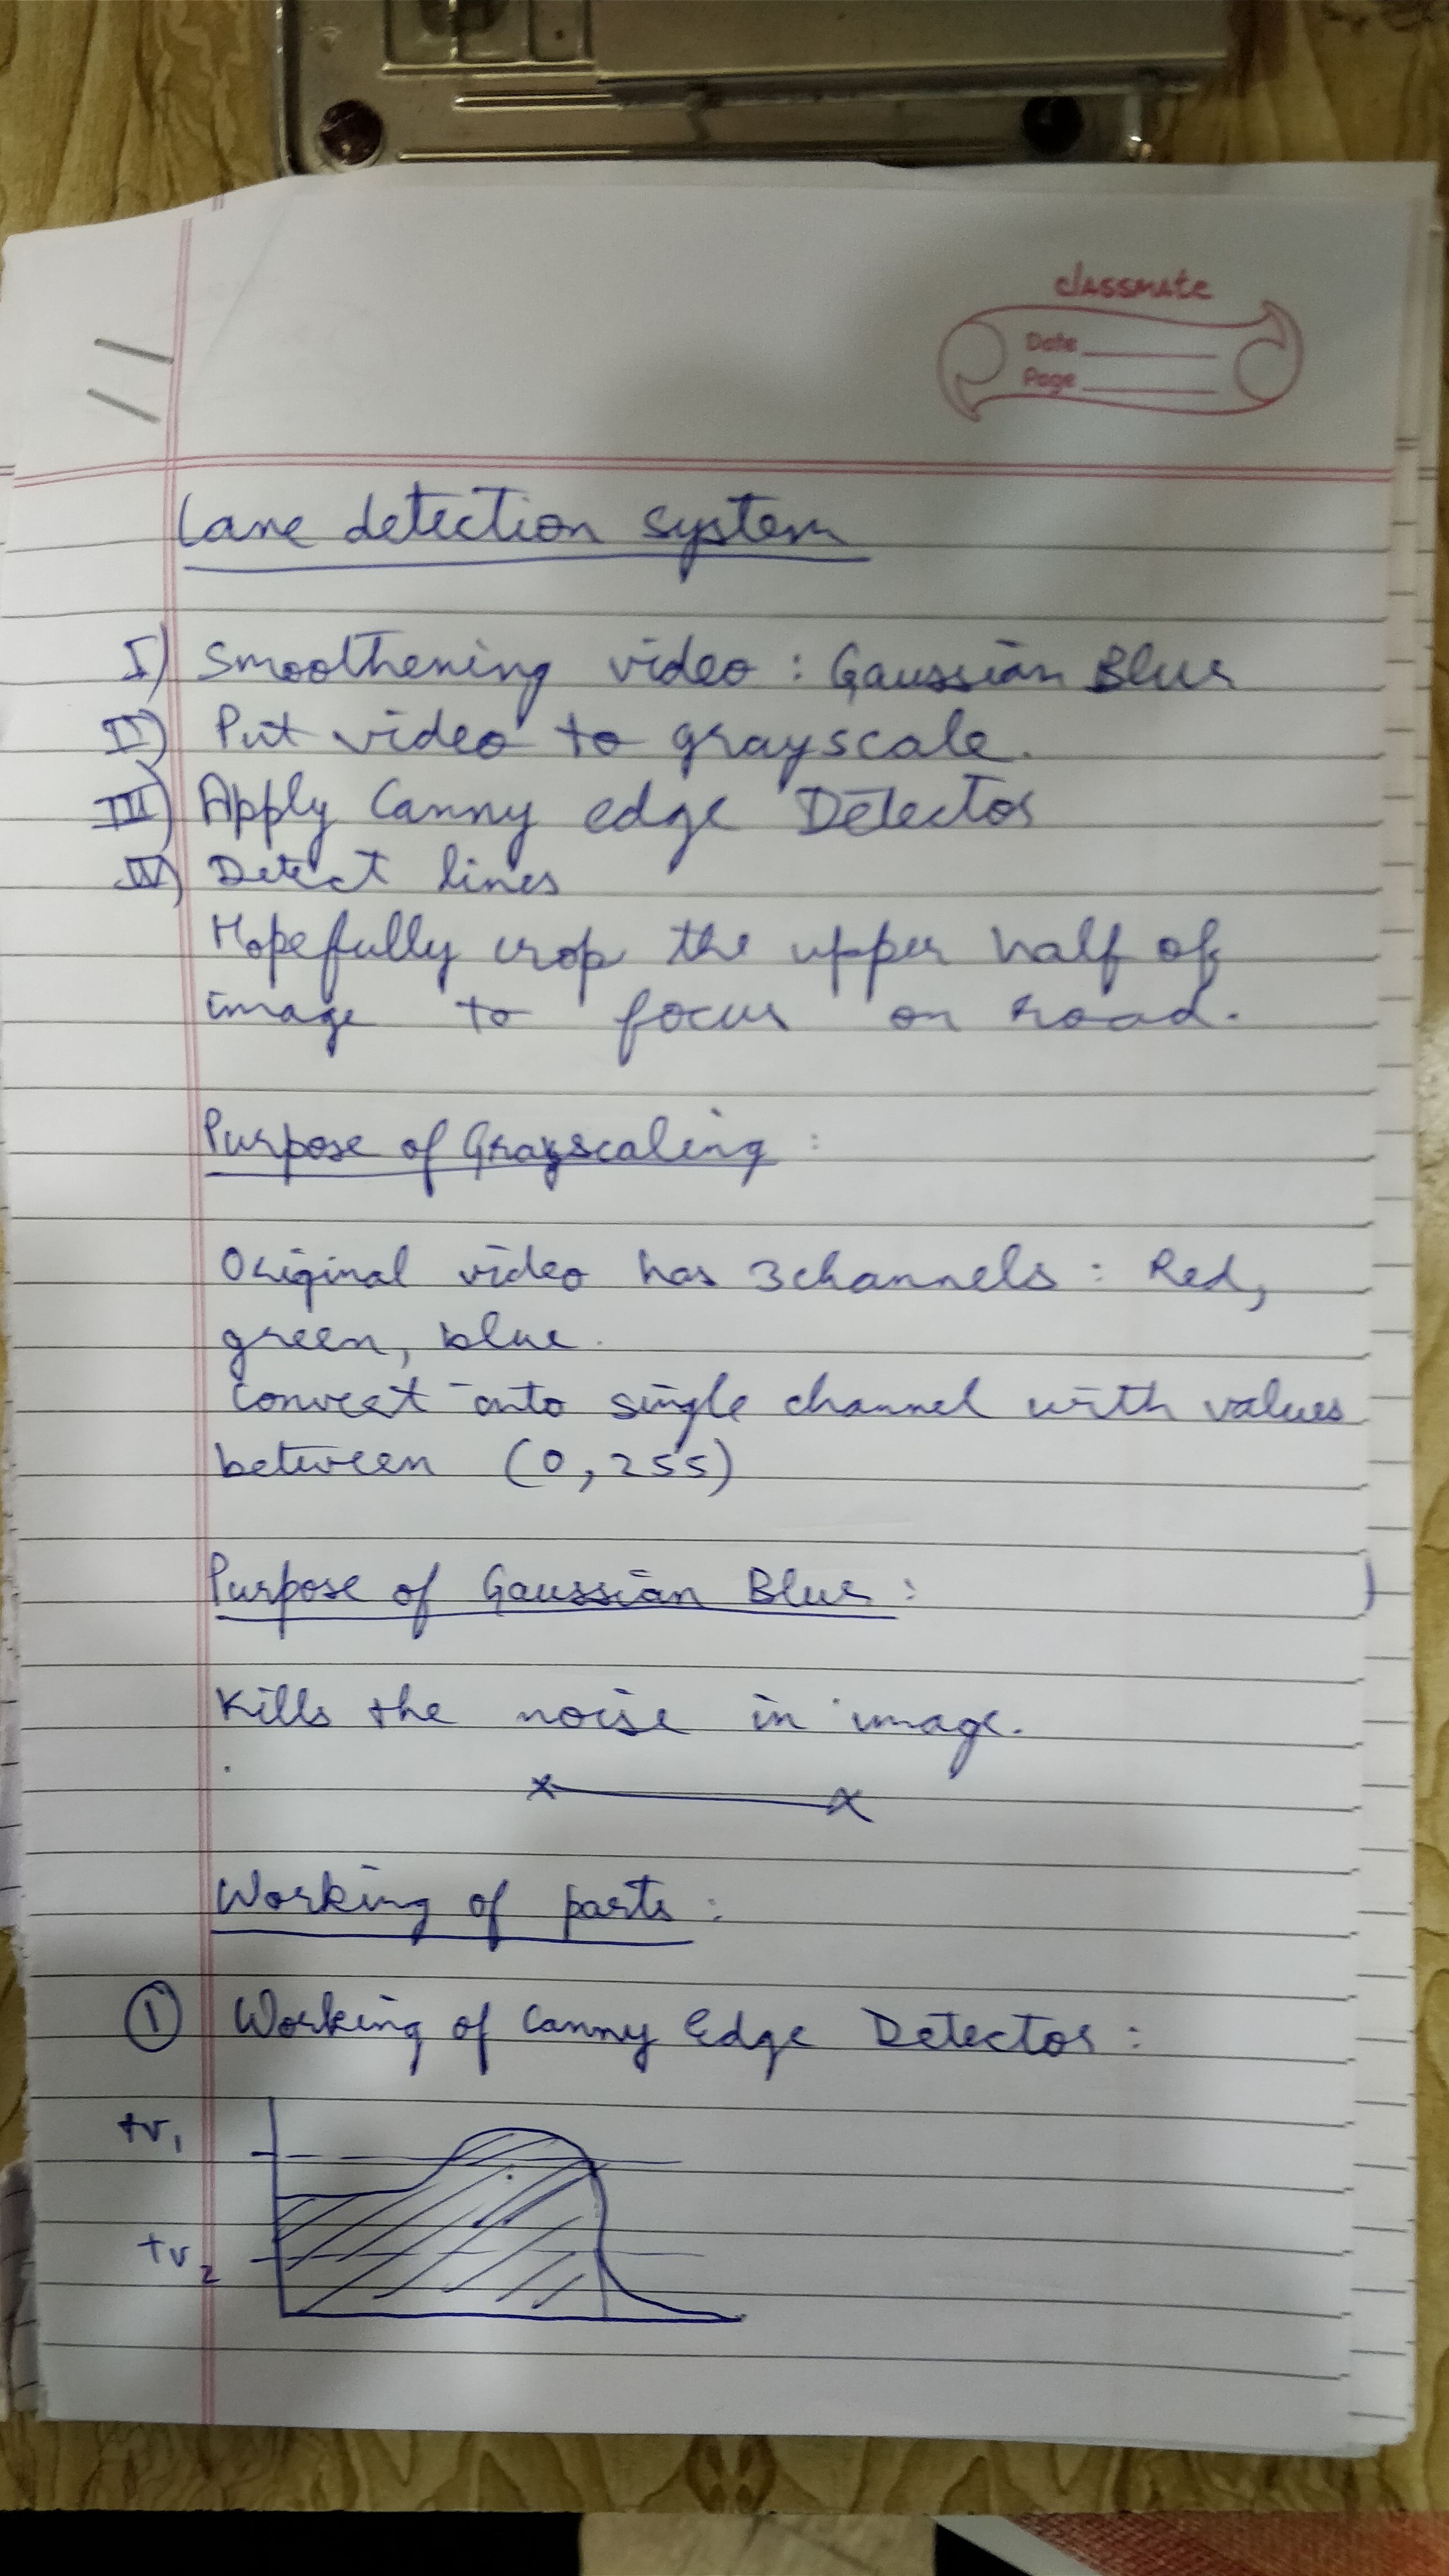 classmate
Date
Page
Lane detection system
I) Smoothening video : Gaussian Blur
II) Put video to grayscale.
III) Apply Canny edge Detector
IV) Detect lines
Hopefully crop the upper half of
image to focus on road.
Purpose of Grayscaling :
Original video has 3 channels : Red,
green, blue.
Convert into single channel with values
between (0, 255)
Purpose of Gaussian Blur :
Kills the noise in image.
x x
Working of parts :
① Working of Canny Edge Detector :
tv1
tv2